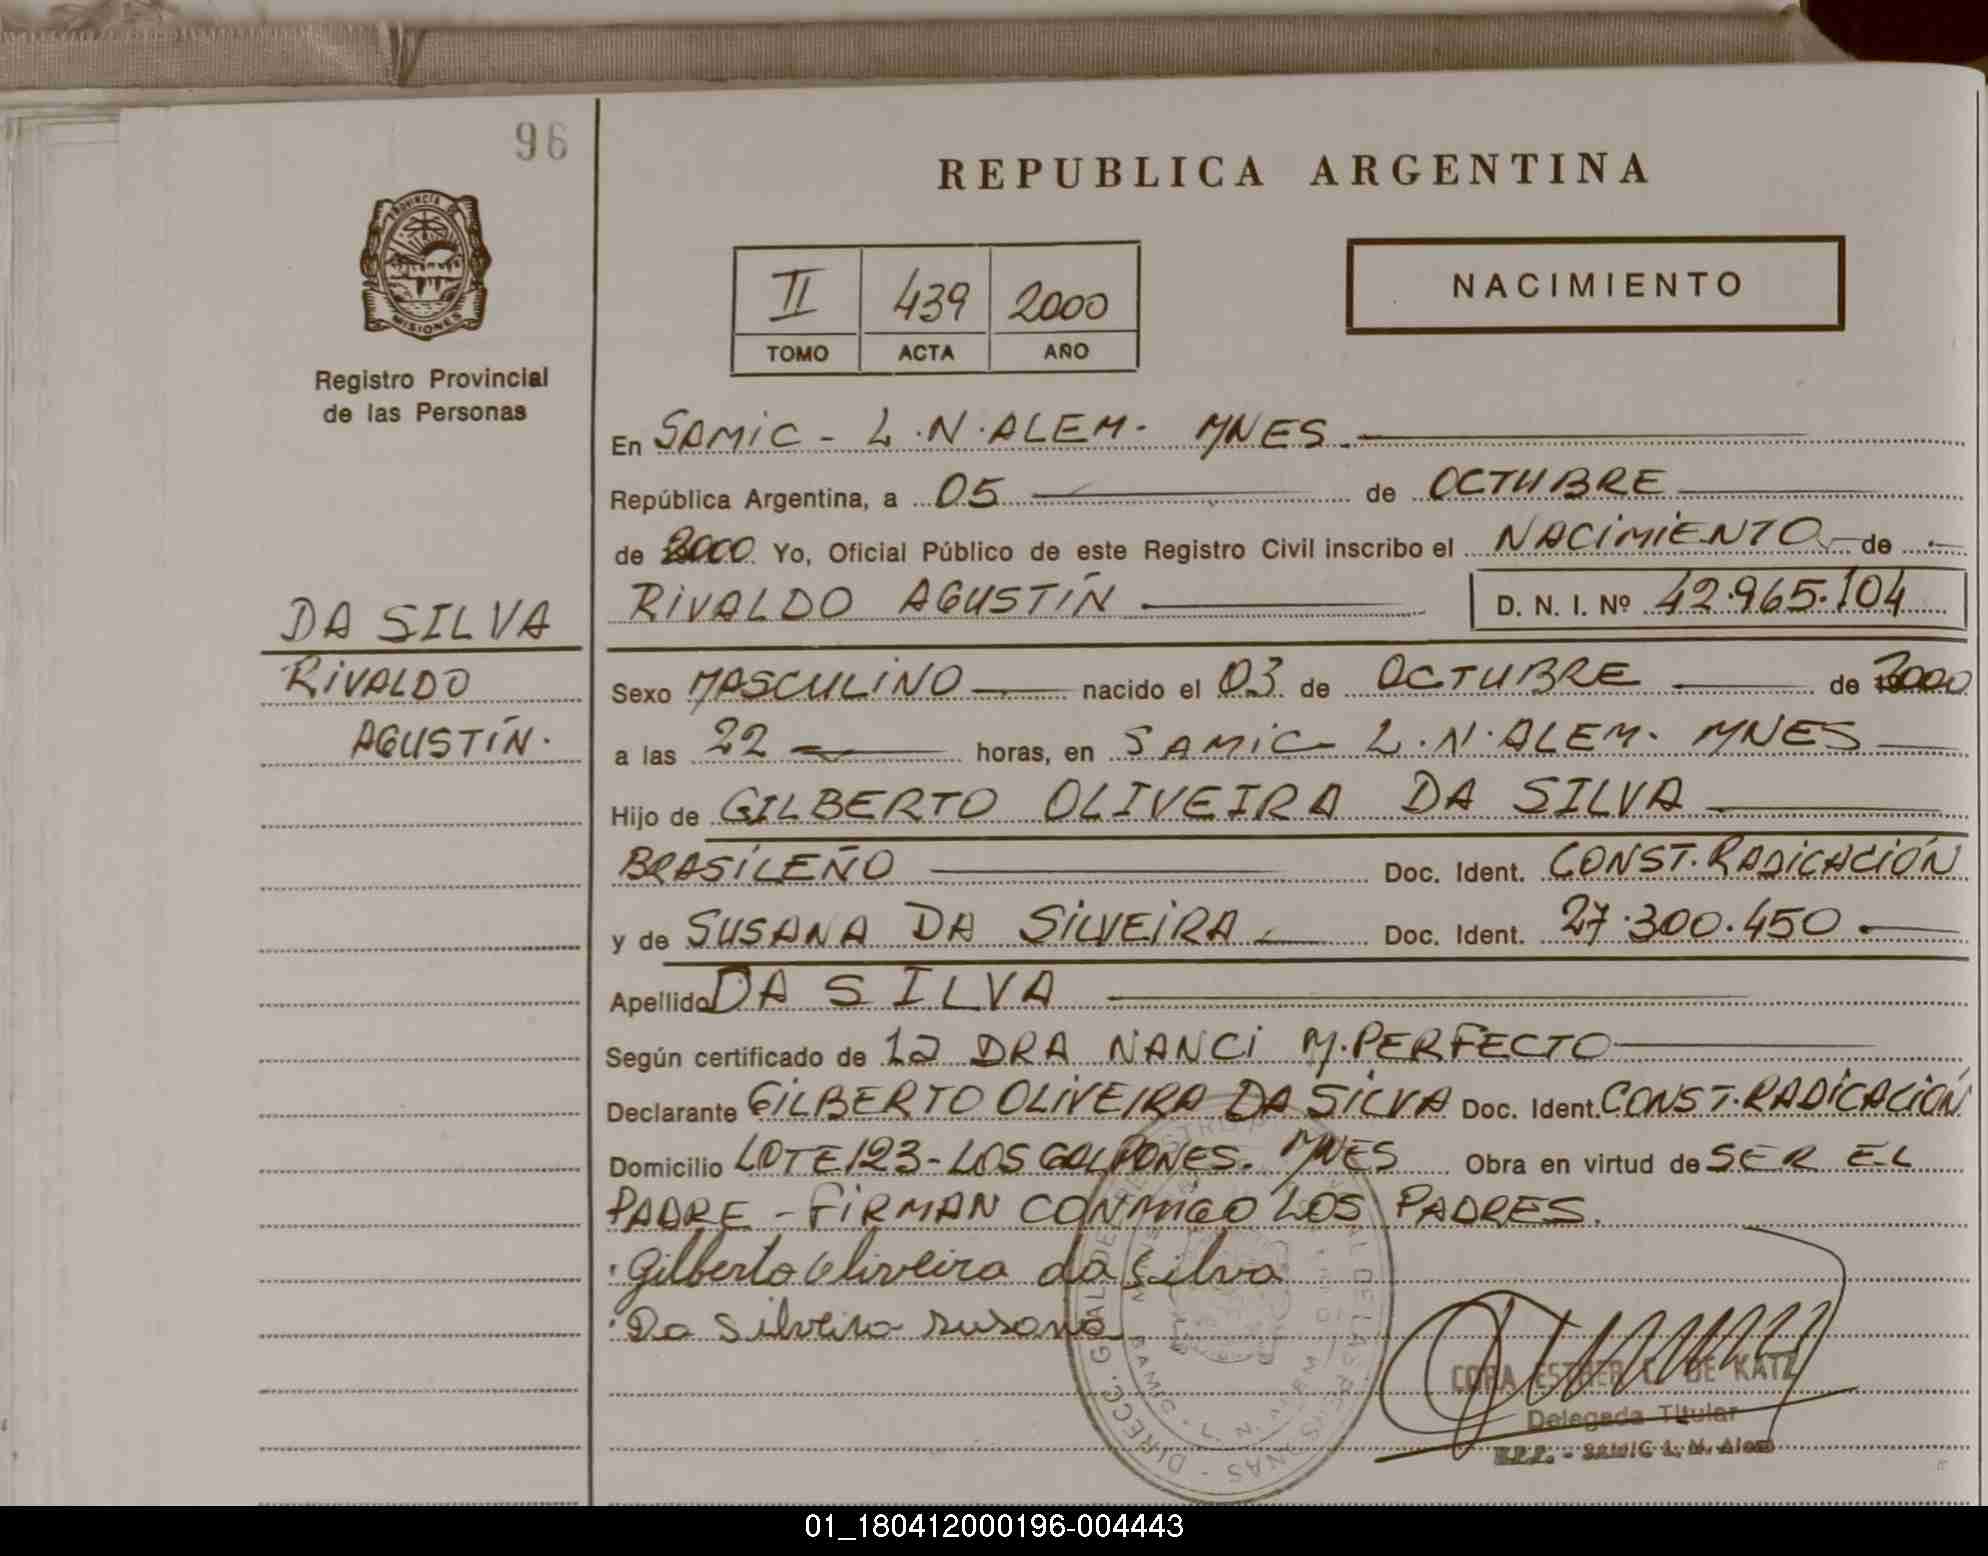 96
REPUBLICA ARGENTINA
PROVINCIA DE
MISIONES
Registro Provincial
de las Personas
II 439 2000
TOMO ACTA AÑO
NACIMIENTO
En SAMIC - L.N.ALEM. MNES.
República Argentina, a 05 de OCTUBRE
de 2000 Yo, Oficial Público de este Registro Civil inscribo el NACIMIENTO de
RIVALDO AGUSTÍN D. N. I. Nº 42.965.104
DA SILVA
RIVALDO
AGUSTÍN.
Sexo MASCULINO nacido el 03 de OCTUBRE de 2000
a las 22 horas, en SAMIC L.N.ALEM. MNES
Hijo de GILBERTO OLIVEIRA DA SILVA
BRASILEÑO Doc. Ident. CONST. RADICACIÓN
y de SUSANA DA SILVEIRA Doc. Ident. 27.300.450
Apellido DA SILVA
Según certificado de LA DRA NANCI M. PERFECTO
Declarante GILBERTO OLIVEIRA DA SILVA Doc. Ident. CONST. RADICACIÓN
Domicilio LOTE 123 - LOS GALPONES. MNES Obra en virtud de SER EL
PADRE - FIRMAN CONMIGO LOS PADRES.
Gilberto Oliveira da Silva
Da Silveira Susana
CORA ESTHER C. DE KATZ
Delegada Titular
R.P.P. - SAMIC L. N. Alem
01_180412000196-004443